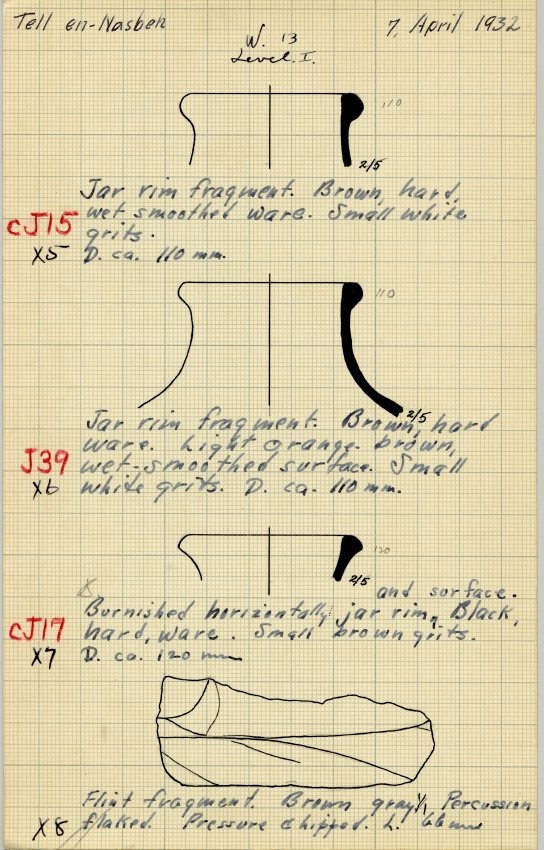 Tell en-Nasbeh 7, April 1932
W. 13
Level. I.
110
2/5
Jar rim fragment. Brown, hard,
cJ15 wet-smoothed ware. Small white
grits.
X5 D. ca. 110 mm.
110
2/5
Jar rim fragment. Brown, hard
ware. Light orange-brown,
J39 wet-smoothed surface. Small
X6 white grits. D. ca. 110 mm.
120
2/5
and surface.
Burnished horizontally jar rim, Black,
cJ17 hard, ware. Small brown grits.
X7 D. ca. 120 mm
Flint fragment. Brown gray 1/1 Percussion
X8 flaked. Pressure chipped. L. 66 mm